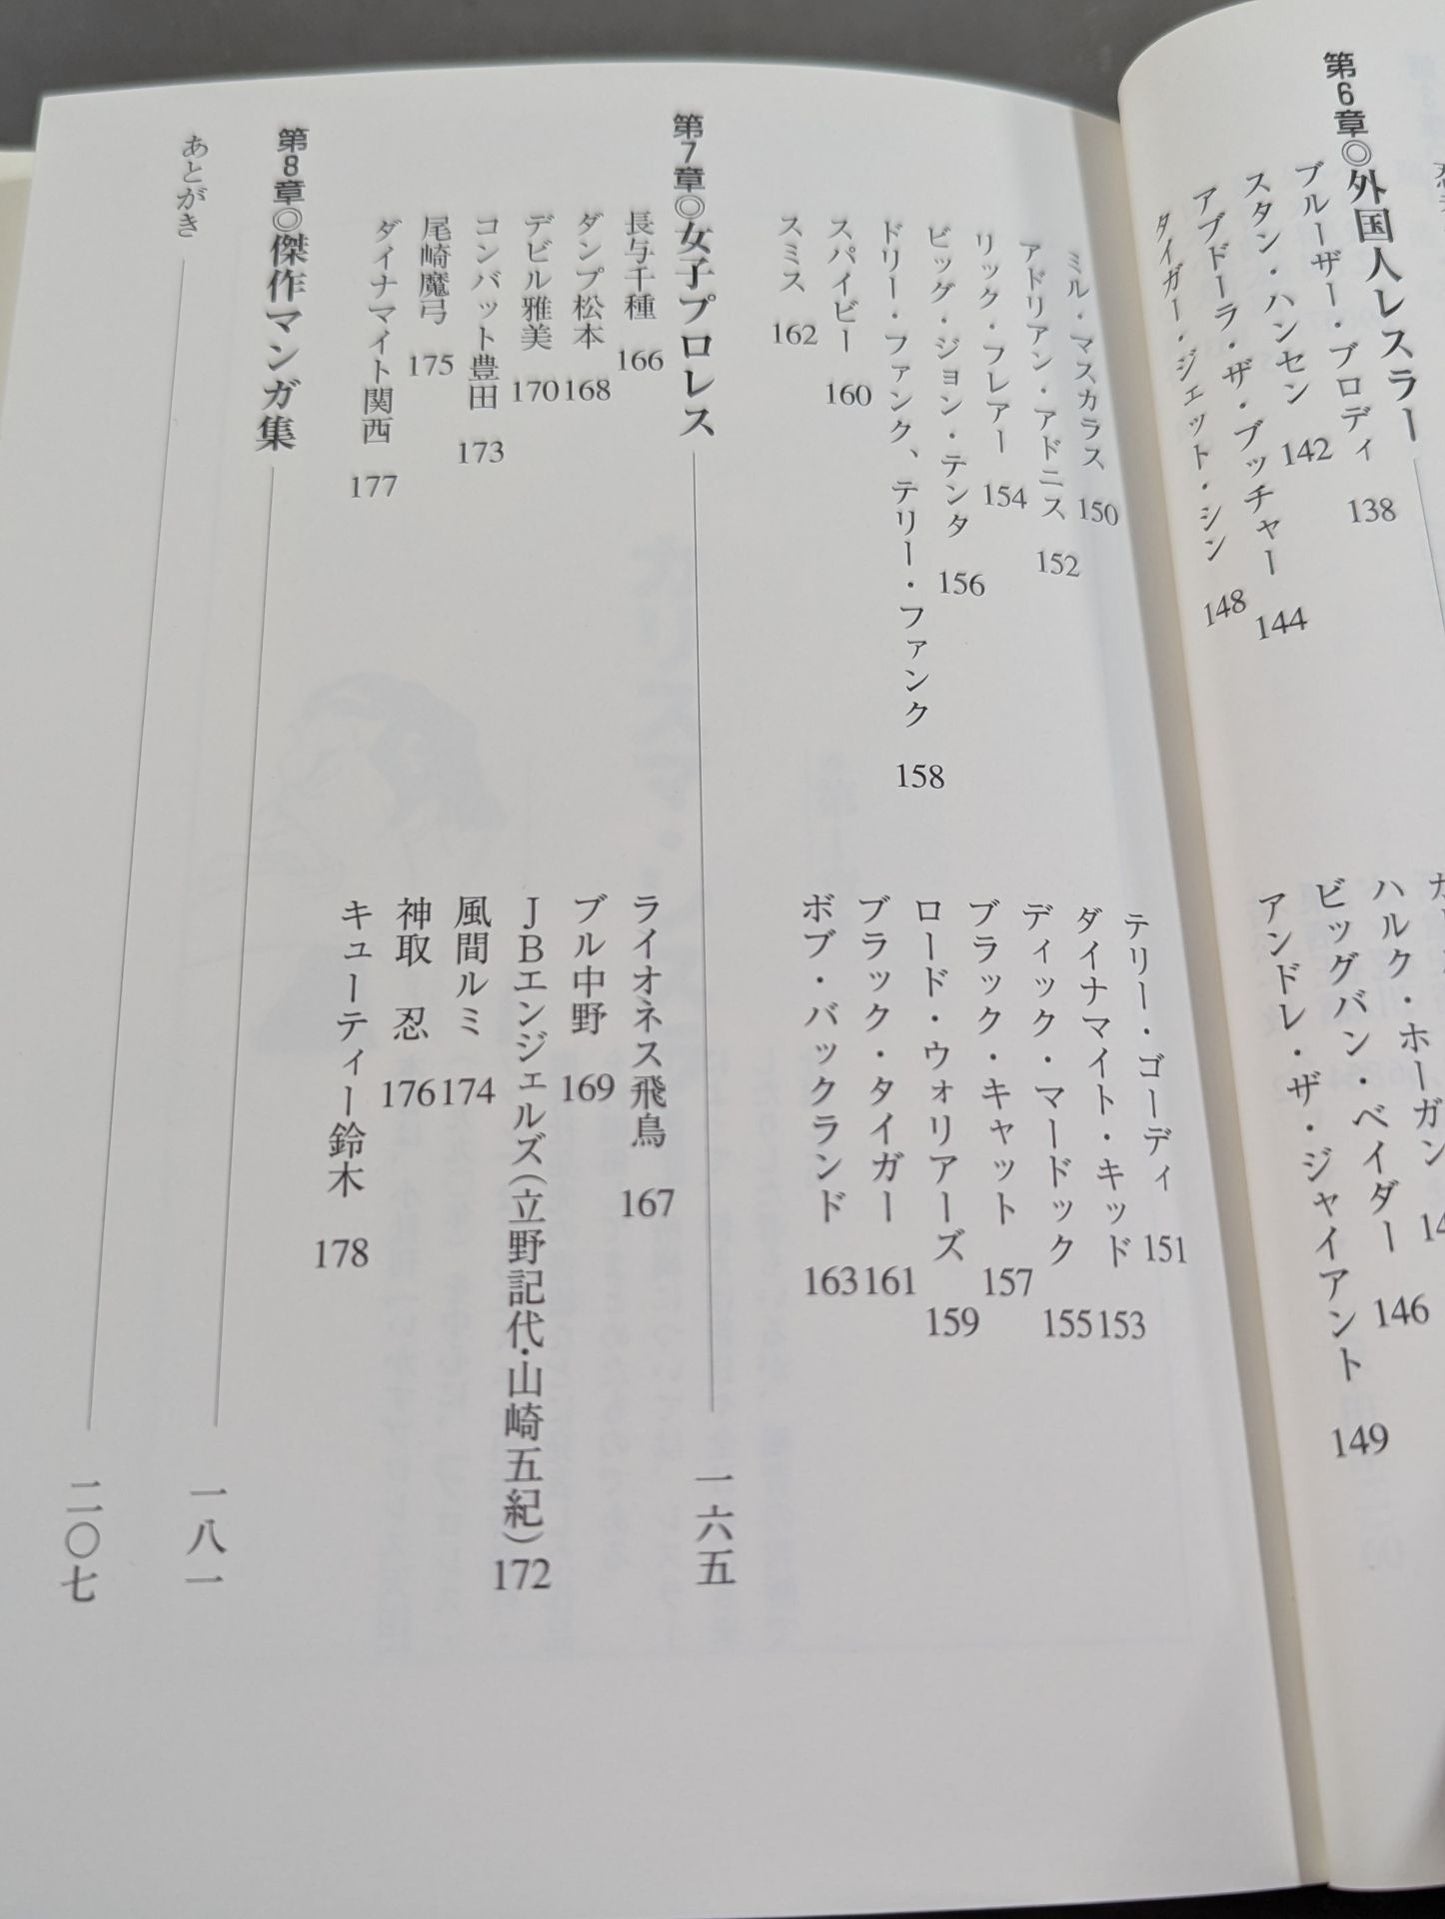 第6章◎外国人レスラー
ブルーザー・ブロディ 138
スタン・ハンセン 142
ハルク・ホーガン
アブドーラ・ザ・ブッチャー 144
ビッグバン・ベイダー 146
タイガー・ジェット・シン 148
アンドレ・ザ・ジャイアント 149
ミル・マスカラス 150
テリー・ゴーディ 151
アドリアン・アドニス 152
ダイナマイト・キッド 153
リック・フレアー 154
ディック・マードック 155
ビッグ・ジョン・テンタ 156
ブラック・キャット 157
ドリー・ファンク、テリー・ファンク 158
ロード・ウォリアーズ 159
スパイビー 160
ブラック・タイガー 161
スミス 162
ボブ・バックランド 163
第7章◎女子プロレス 一六五
長与千種 166
ライオネス飛鳥 167
ダンプ松本 168
ブル中野 169
デビル雅美 170
JBエンジェルズ(立野記代・山崎五紀) 172
コンバット豊田 173
風間ルミ 174
尾崎魔弓 175
神取 忍 176
ダイナマイト関西 177
キューティー鈴木 178
第8章◎傑作マンガ集 一八一
あとがき 二〇七